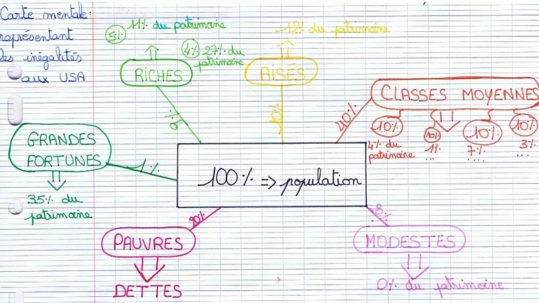 Carte mentale
représentant
les inégalités
aux USA
5% 11% du patrimoine
4% 27% du
patrimoine
RICHES
9%
12% du patrimoine
AISÉS
10%
CLASSES MOYENNES
40%
10% 10% 10% 10%
4% du 1% 7% 3%
patrimoine ... ... ...
GRANDES
FORTUNES
1%
35% du
patrimoine
100% => population
20%
PAUVRES
DETTES
MODESTES
0% du patrimoine